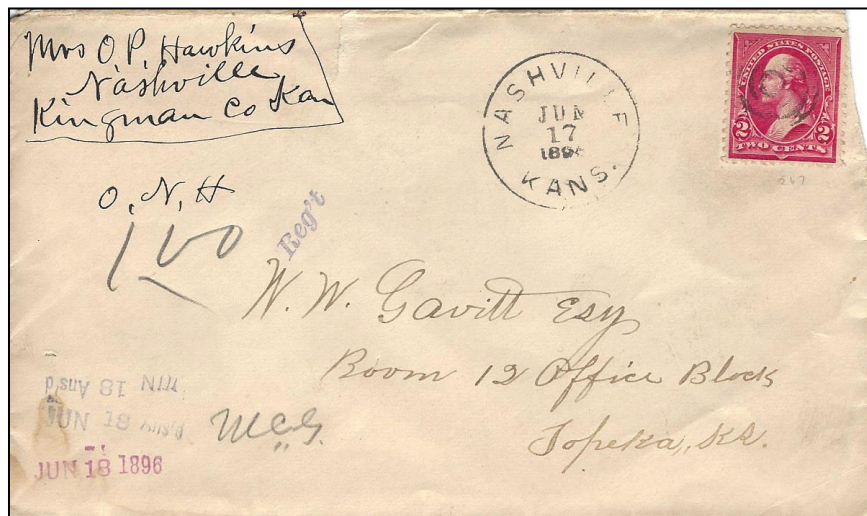 Mrs O.P. Hawkins
Nashville
Kingman Co Kan
NASHVILLE
JUN
17
1896
KANS.
UNITED STATES POSTAGE
2 2
TWO CENTS
267
O, N, H
100
Reg't
W. W. Gavitt Esq
Room 12 Office Block
Topeka, Ks.
JUN 18 Ans'd
JUN 18 Ans'd
McG.
JUN 18 1896